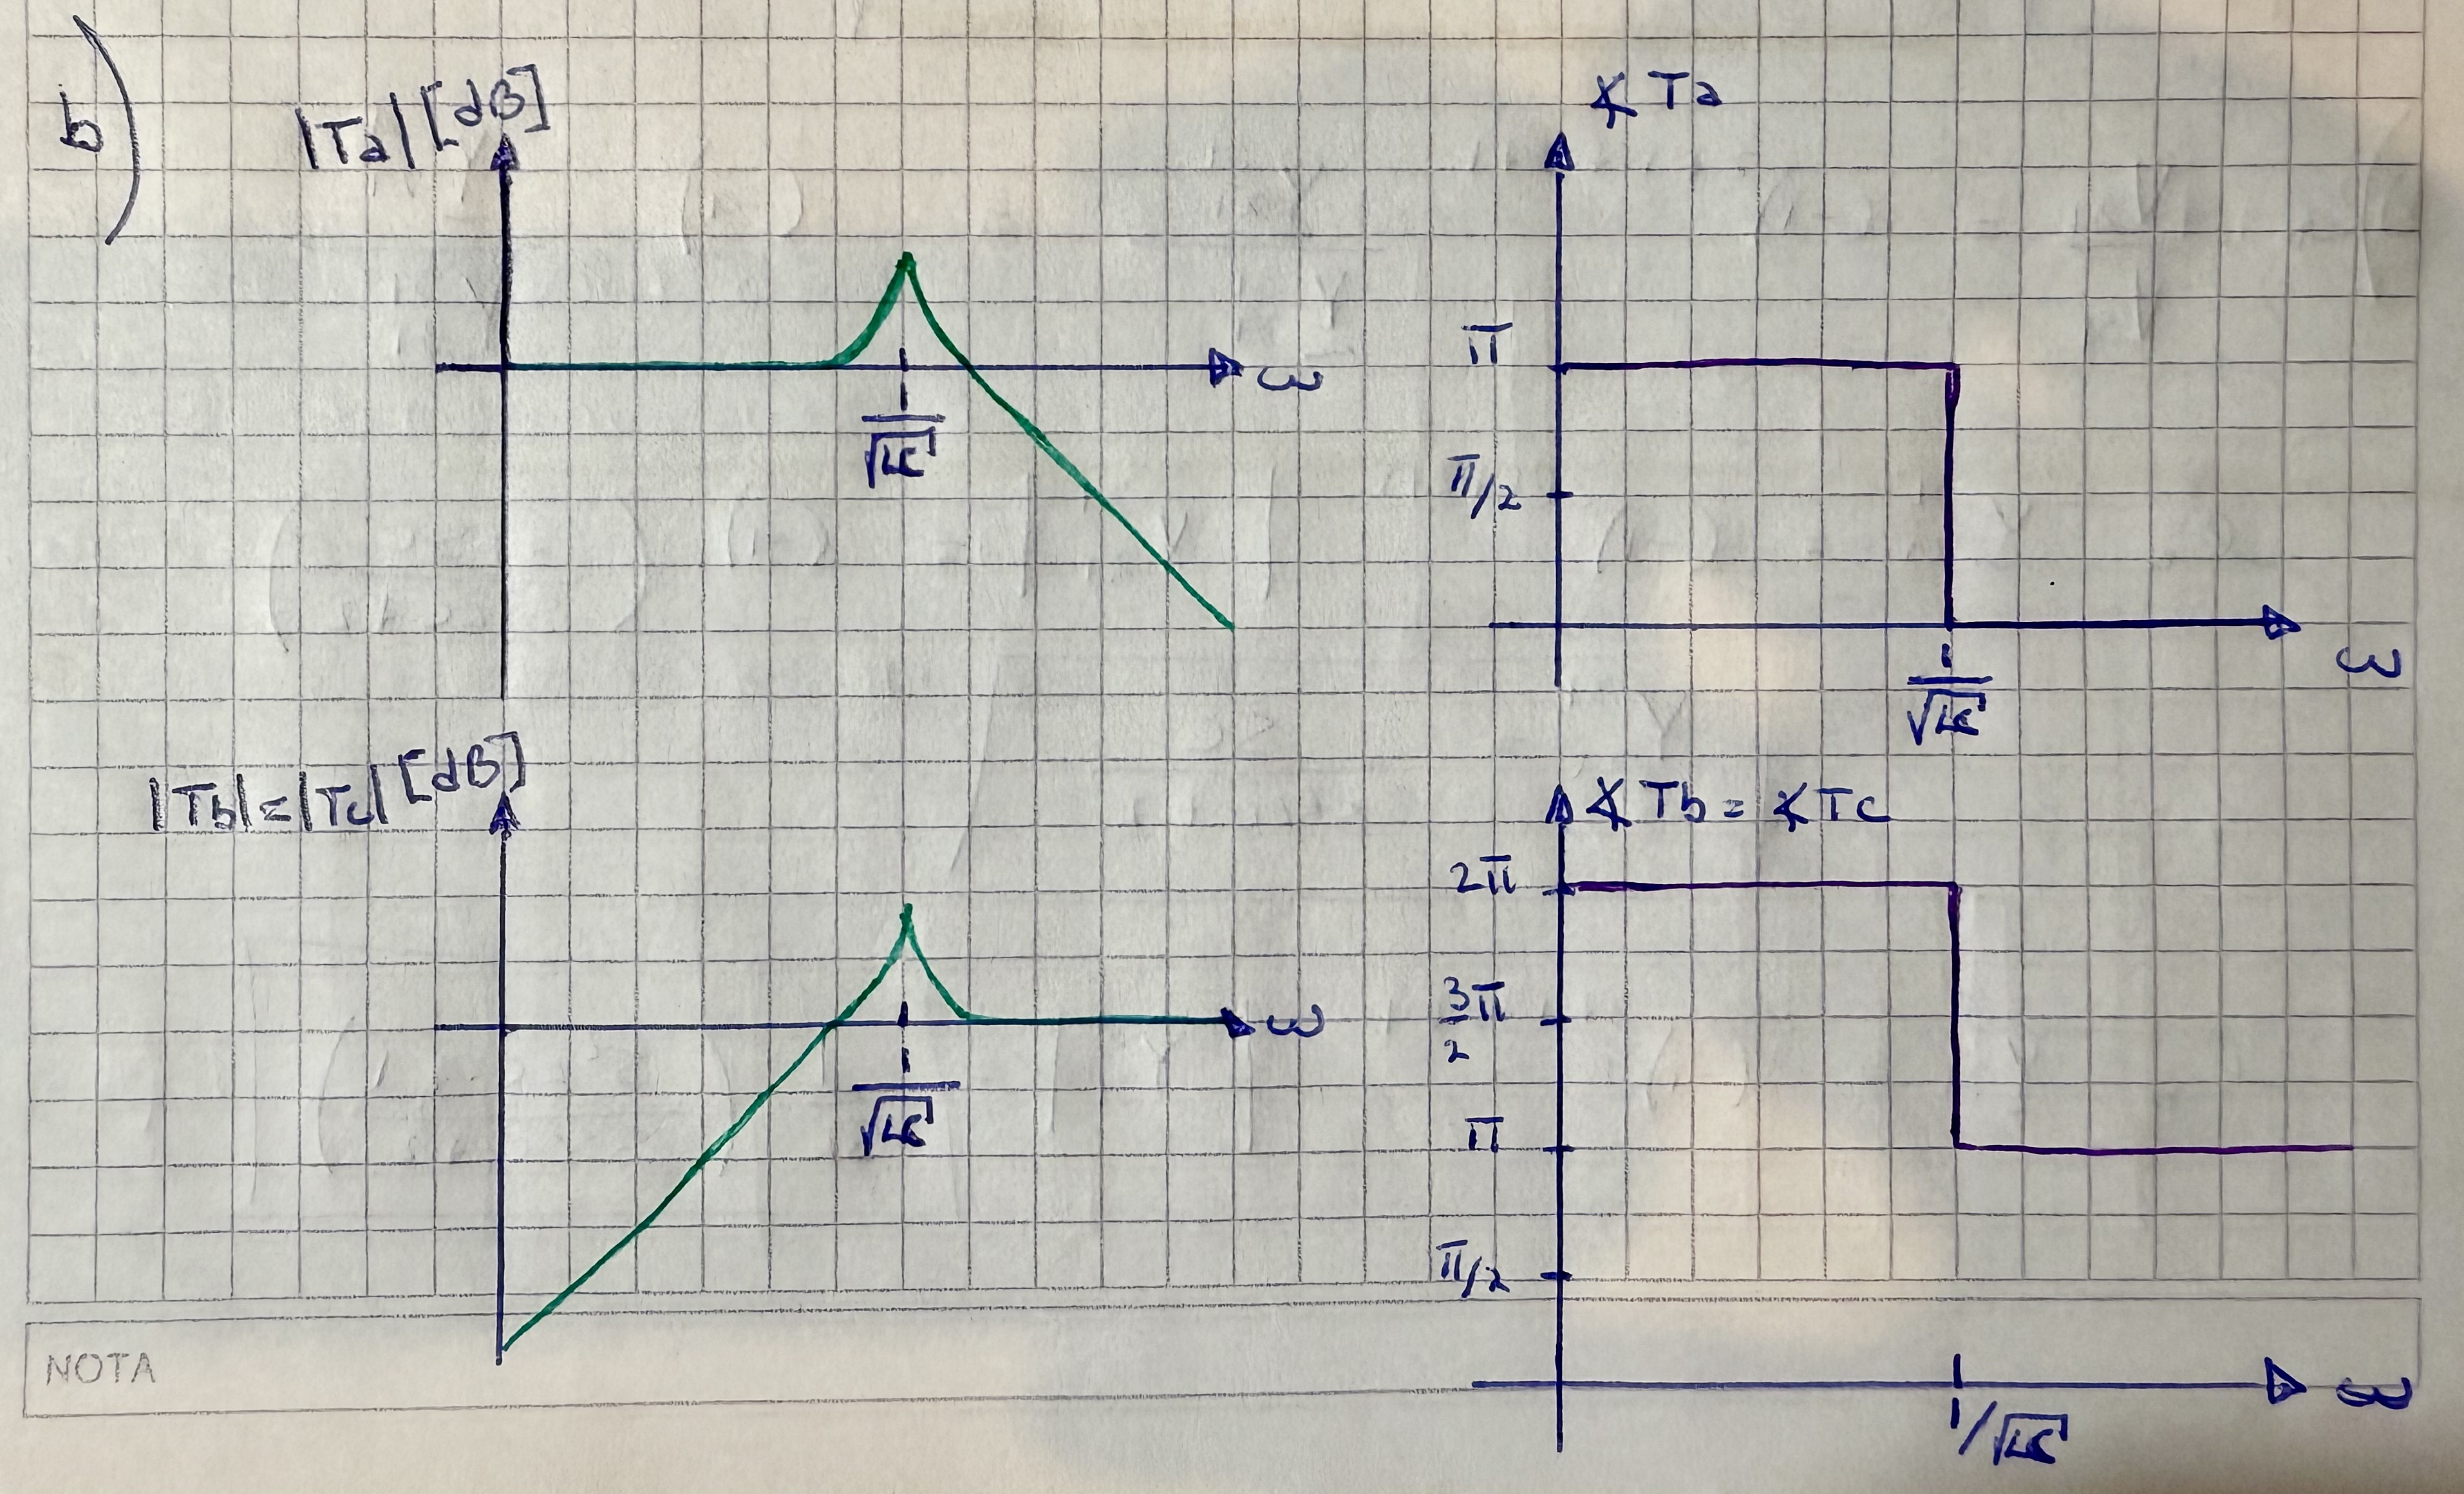 b)
|Ta| [dB]
ω
1/√LC
∡ Ta
π
π/2
1/√LC
ω
|Tb|=|Tc| [dB]
ω
1/√LC
∡ Tb = ∡ Tc
2π
3π/2
π
π/2
1/√LC
ω
NOTA